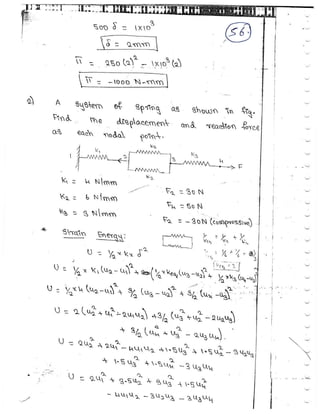 500 δ = 1×10³
56
δ = 2mm
π = 250 (2)² - 1×10³ (2)
π = -1000 N-mm
2) A System of Spring as shown in fig.
Find The displacement and reaction force
as each nodal point.
1 K₁ 2 K₂ 3 K₃ 4 F
K₂
K₁ = 4 N/mm
K₂ = 6 N/mm
K₃ = 3 N/mm
F₂ = 30 N
F₄ = 50 N
F₂ = -30N (compressive)
* Strain Energy:
U = ½ × K × δ²
U = ½ × K₁ (u₂-u₁)² + ½ × Keq (u₃-u₂)² + ½ × K₃ (u₄-u₃)²
U = ½ × 4 (u₂-u₁)² + 3/2 (u₃-u₂)² + 3/2 (u₄-u₃)²
U = 2 (u₂² + u₁² - 2u₁u₂) + 3/2 (u₃² + u₂² - 2u₂u₃)
+ 3/2 (u₄² + u₃² - 2u₃u₄)
U = 2u₂² + 2u₁² - 4u₁u₂ + 1.5u₃² + 1.5u₂² - 3u₂u₃
+ 1.5u₃² + 1.5u₄² - 3u₃u₄
U = 2u₁² + 3.5u₂² + 3u₃² + 1.5u₄²
- 4u₁u₂ - 3u₂u₃ - 3u₃u₄